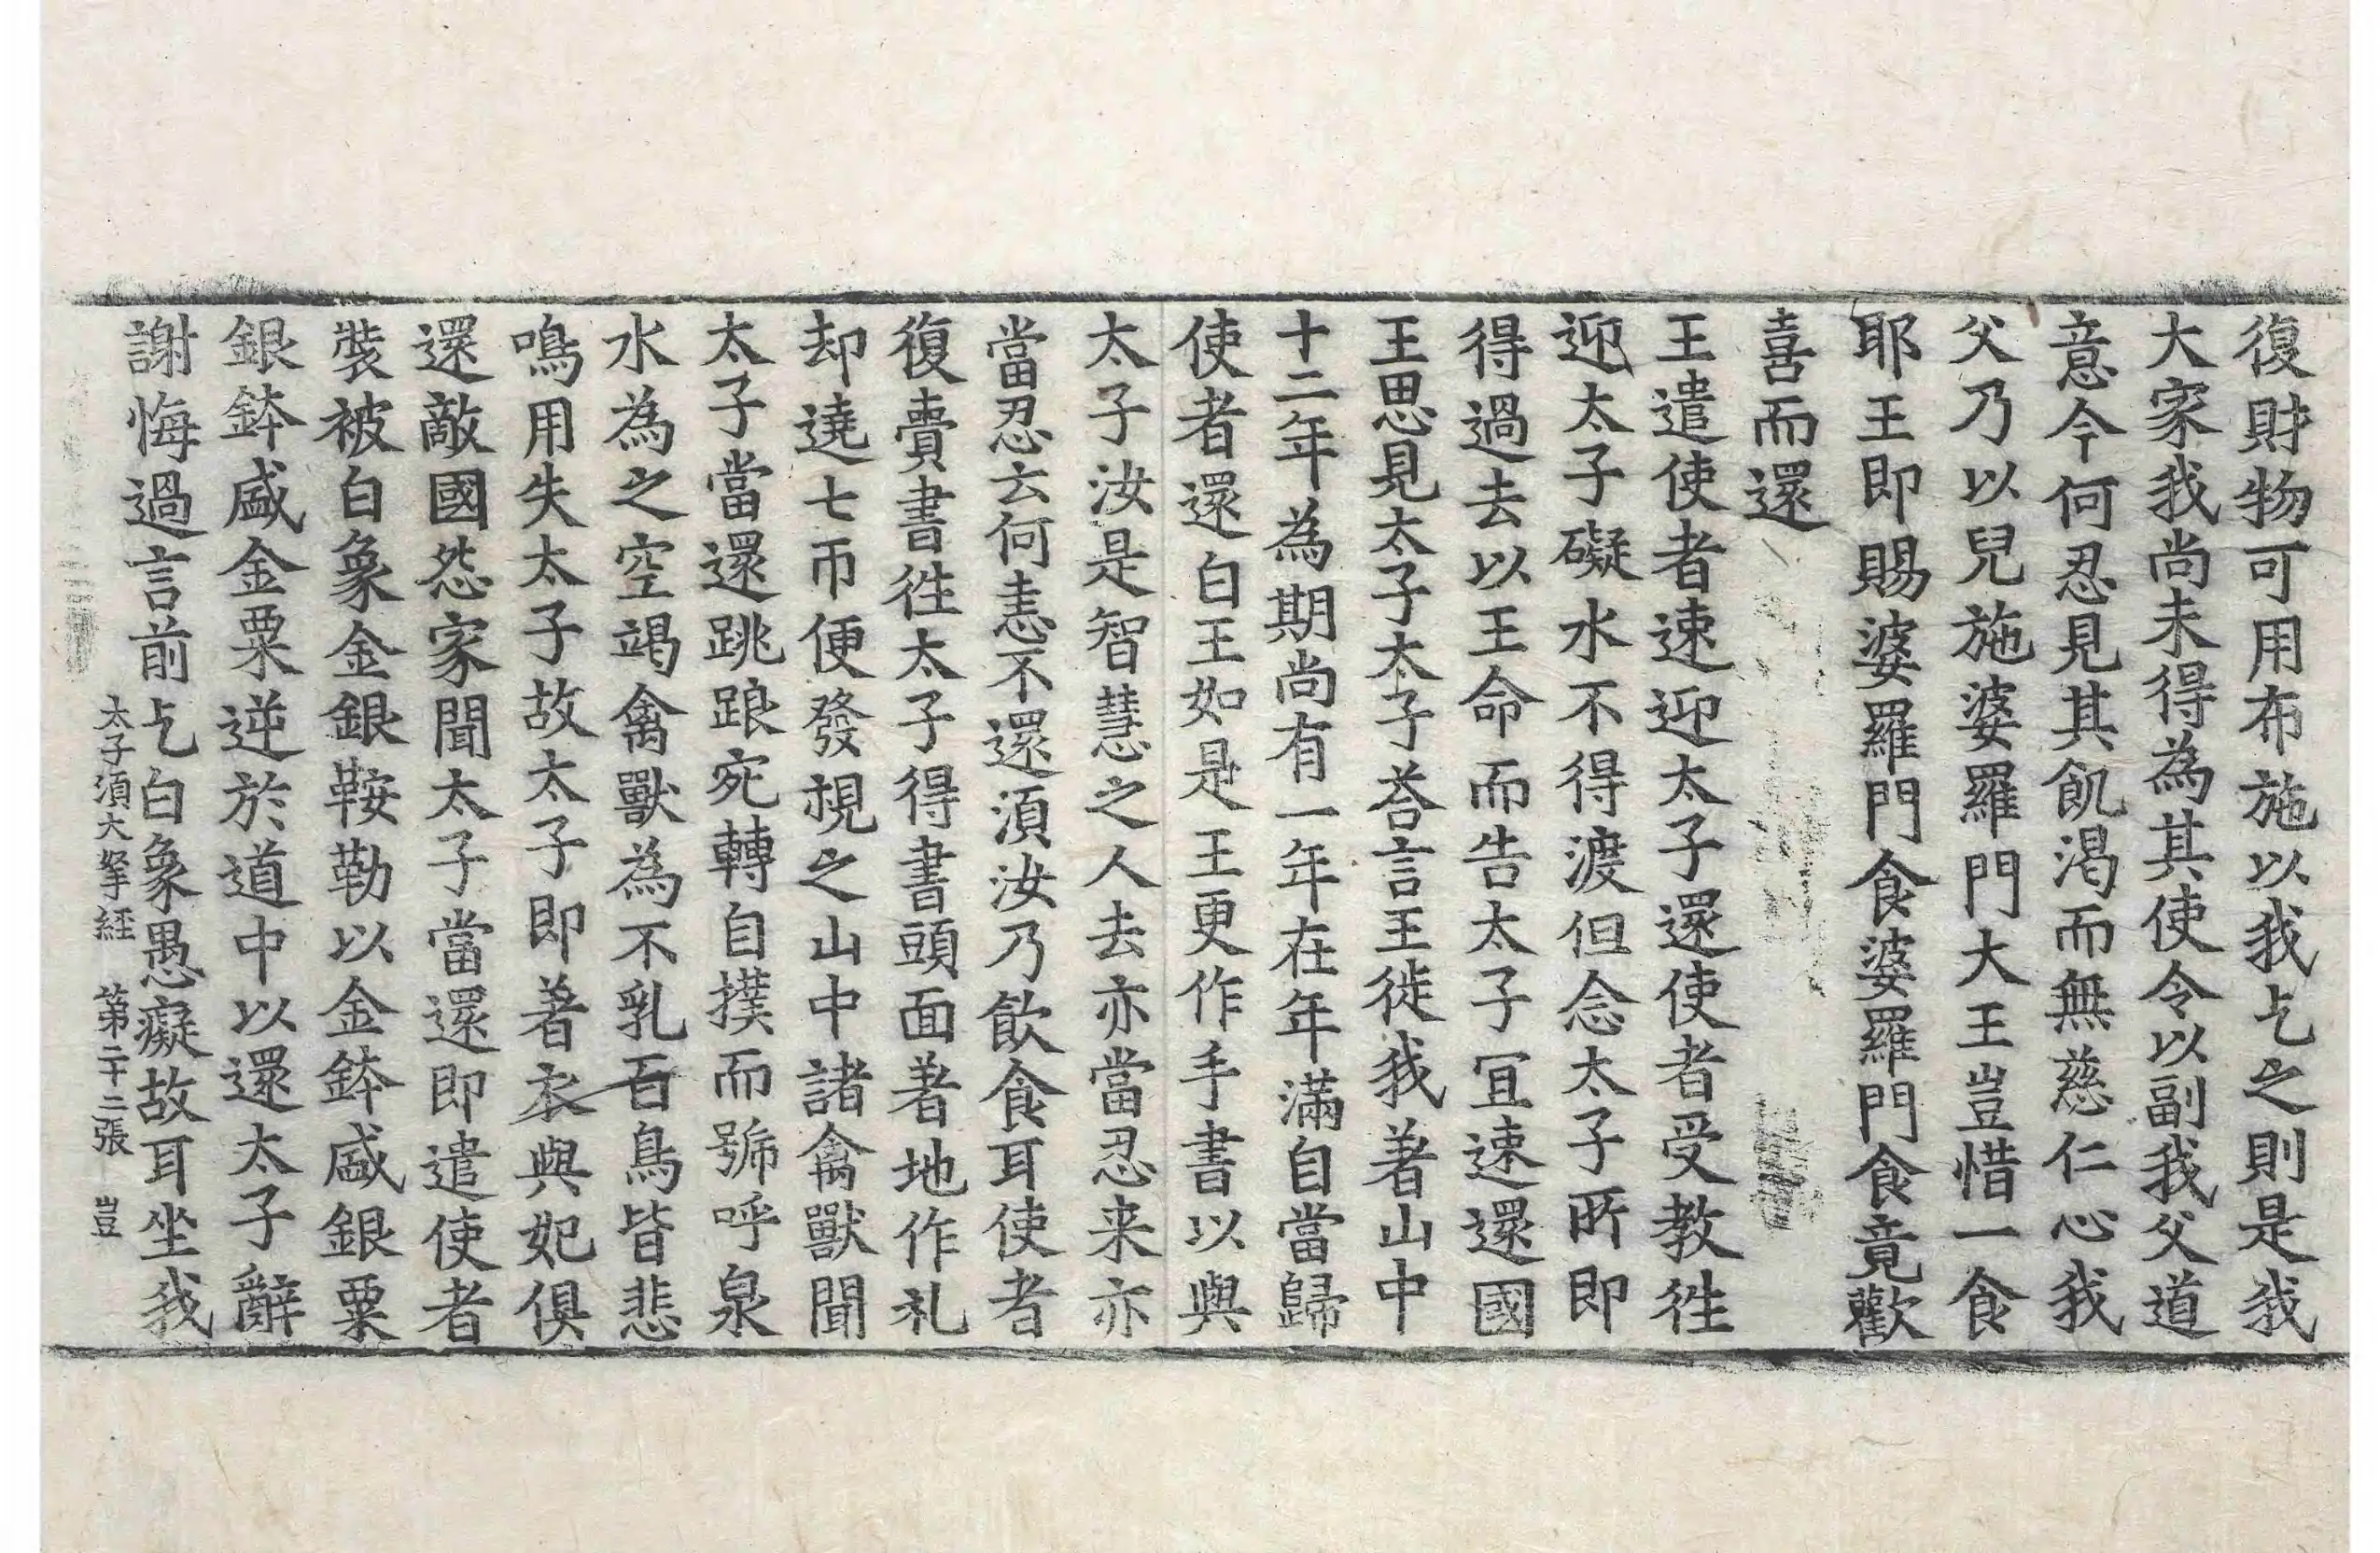 復財物可用布施以我乞之則是我
大家我尚未得為其使令以副我父道
意今何忍見其飢渴而無慈仁心我
父乃以兒施婆羅門大王豈惜一食
耶王即賜婆羅門食婆羅門食竟歡
喜而還
王遣使者速迎太子還使者受教徃
迎太子礙水不得渡但念太子所即
得過去以王命而告太子冝速還國
王思見太子太子荅言王徙我著山中
十二年為期尚有一年在年滿自當歸
使者還白王如是王更作手書以與
太子汝是智慧之人去亦當忍来亦
當忍云何恚不還湏汝乃飲食耳使者
復賷書徃太子得書頭面著地作礼
却遶七帀便發視之山中諸禽獸聞
太子當還跳踉宛轉自撲而號呼泉
水為之空竭禽獸為不乳百鳥皆悲
鳴用失太子故太子即著衣與妃俱
還敵國怨家聞太子當還即遣使者
裝被白象金銀鞍勒以金鉢盛銀粟
銀鉢盛金粟逆於道中以還太子辭
謝悔過言前乞白象愚癡故耳坐我
太子湏大拏経 第二十二張 豈